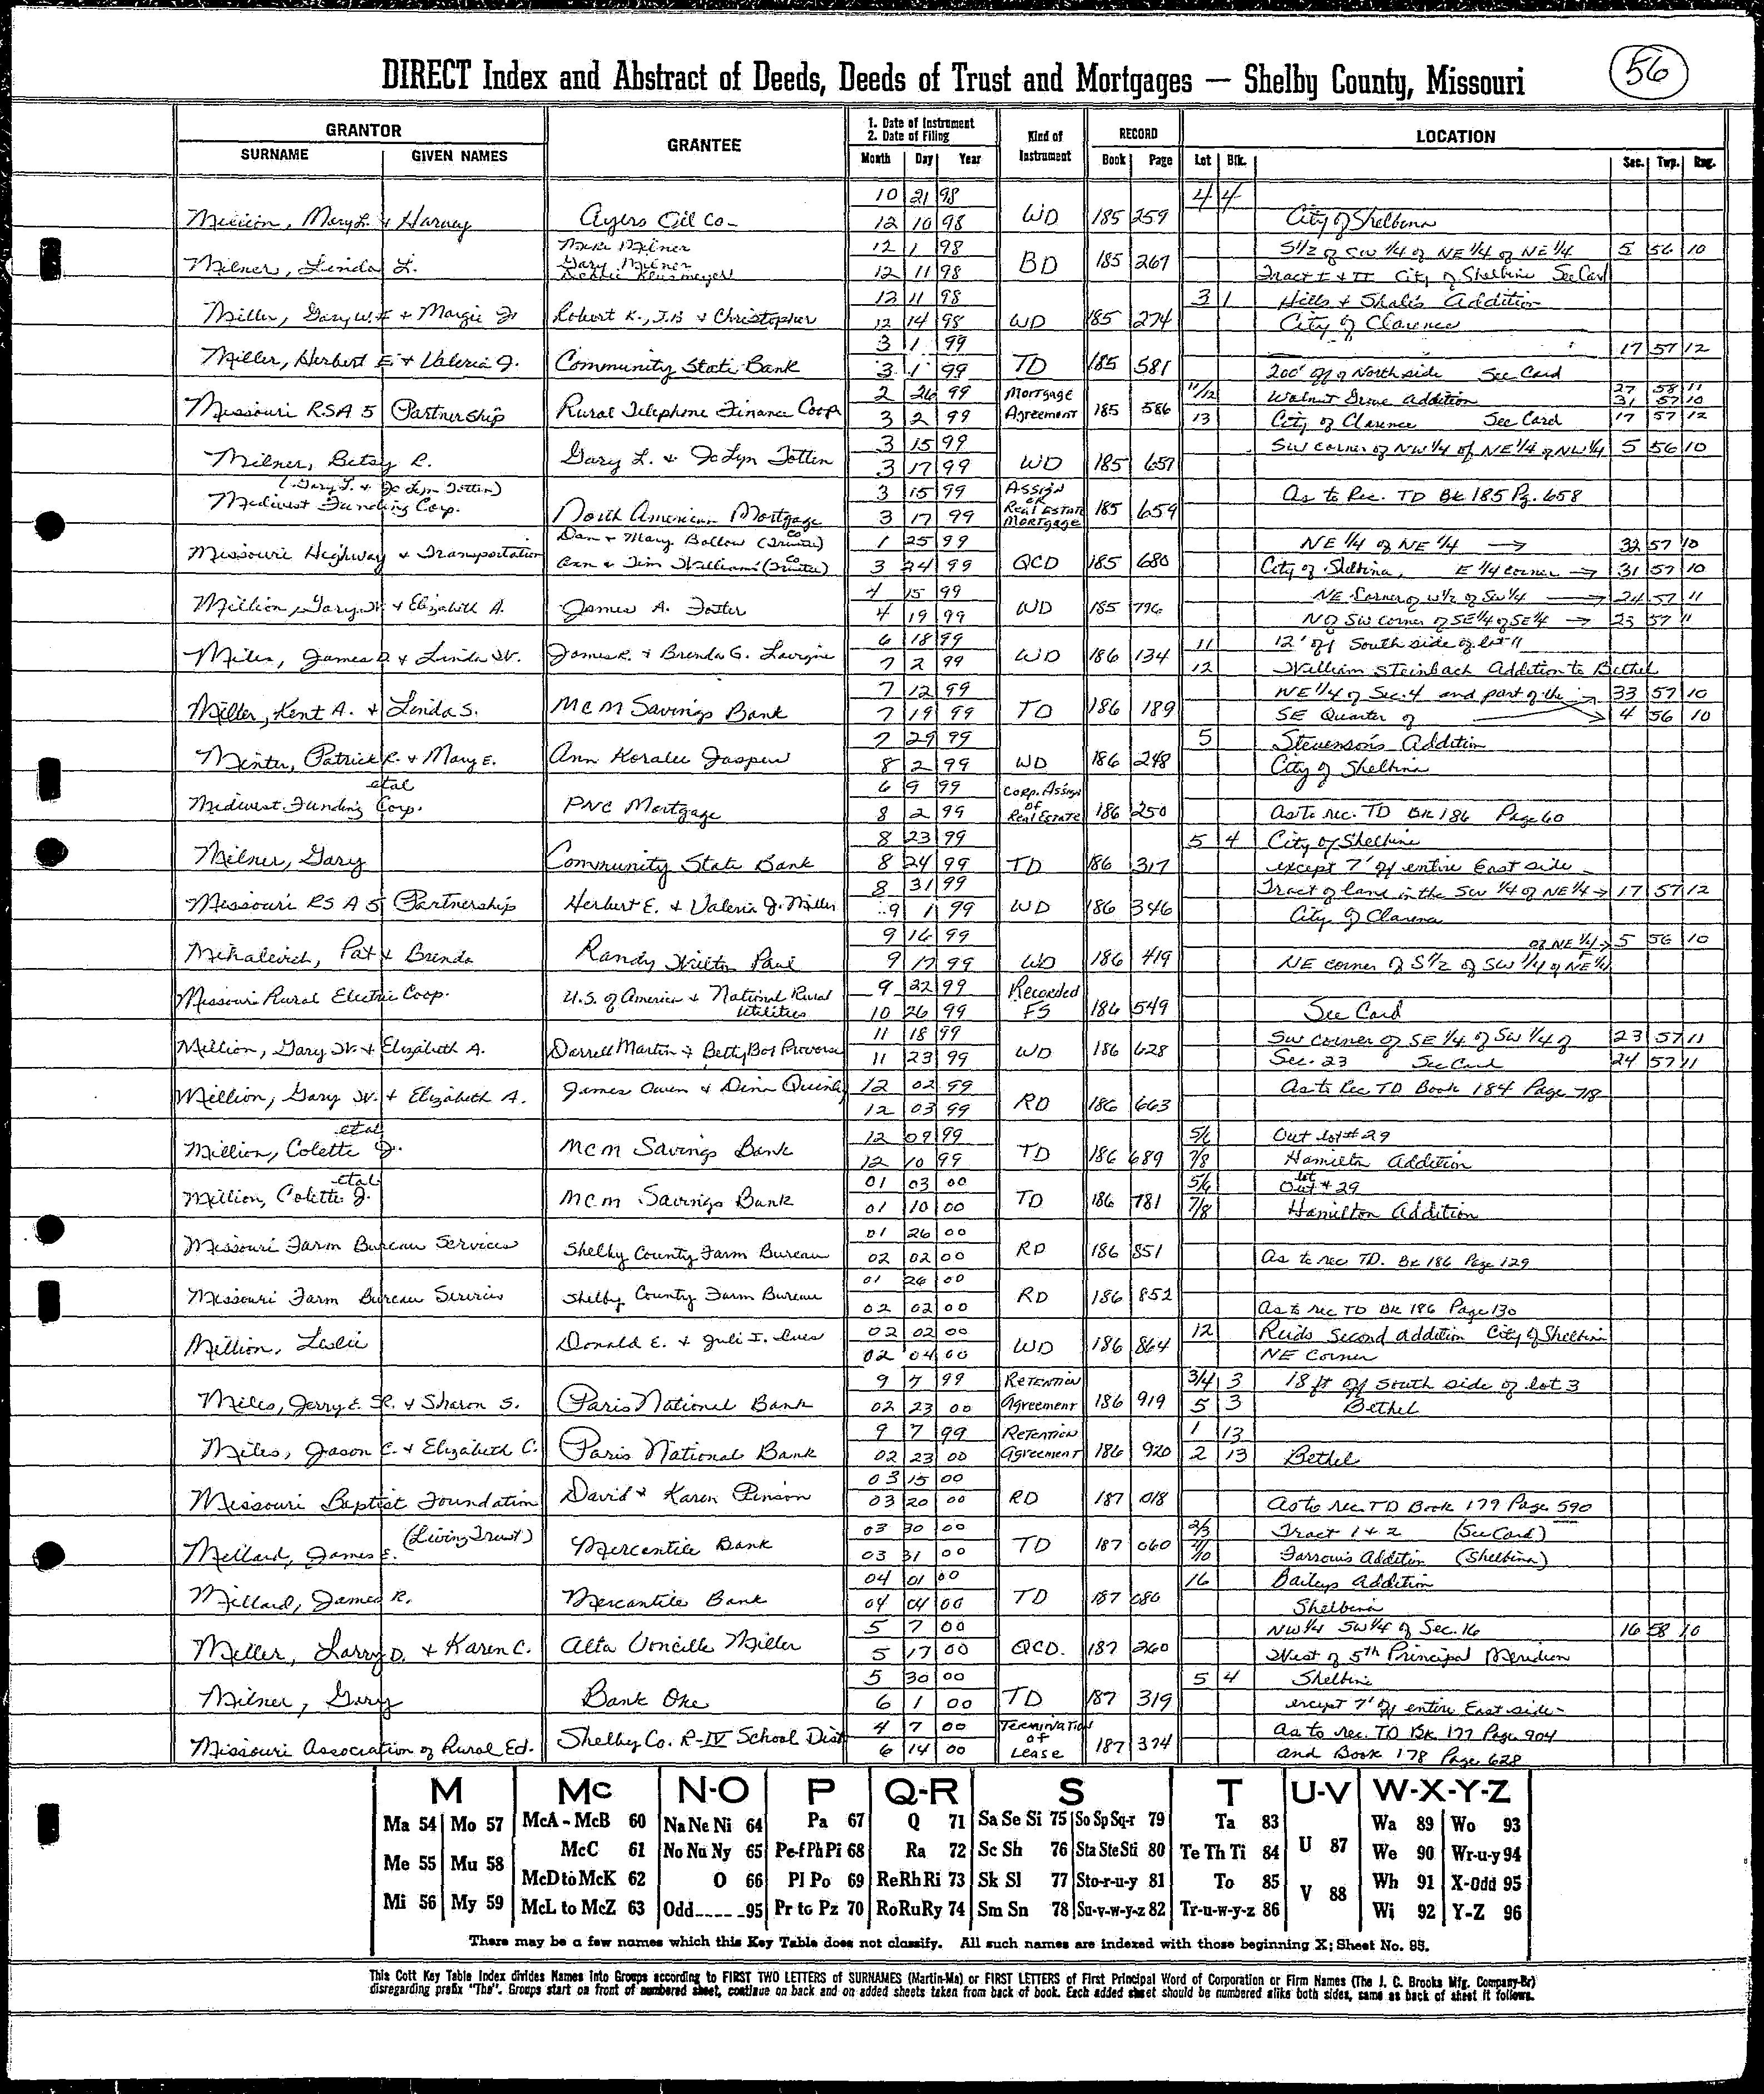 56
DIRECT Index and Abstract of Deeds, Deeds of Trust and Mortgages — Shelby County, Missouri
GRANTOR
SURNAME GIVEN NAMES
GRANTEE
1. Date of Instrument
2. Date of Filing
Month Day Year
Kind of Instrument
RECORD
Book Page
LOCATION
Lot Blk. Sec. Twp. Rng.
10 21 98 4 4
Million, Mary L. & Harvey Ayers Oil Co. 12 10 98 WD 185 259 City of Shelbina
Mike Milner 12 1 98 S 1/2 of SW 1/4 of NE 1/4 of NE 1/4 5 56 10
Milner, Linda L. Gary Milner BD 185 267
12 11 98 Tract I & II City of Shelbina See Card
12 11 98 3 1 Hills & Shales Addition
Miller, Gary W. & Margie J. Robert K., & Christopher 12 14 98 WD 185 274 City of Clarence
3 1 99 17 57 12
Miller, Herbert E. & Valeria J. Community State Bank 3 1 99 TD 185 581 200' off of North side See Card
2 26 99 Mortgage 11/12 Walnut Grove Addition 27 58 11
31 57 10
Missouri RSA 5 Partnership Rural Telephone Finance Coop 3 2 99 Agreement 185 586 13 City of Clarence See Card 17 57 12
3 15 99 SW corner of NW 1/4 of NE 1/4 of NW 1/4 5 56 10
Milner, Betsy R. Gary L. & JoLyn Totten 3 17 99 WD 185 657
(Gary L. & JoLyn Totten) 3 15 99 Assign of Real Estate Mortgage As to Rec. TD Bk 185 Pg. 658
Midwest Funding Corp. North American Mortgage Co 3 17 99 185 659
Dan & Mary Bollow (Co Trustee) 1 25 99 NE 1/4 of NE 1/4 → 32 57 10
Missouri Highway & Transportation Ann & Jim Williams (Co Trustee) 3 24 99 QCD 185 680 City of Shelbina, E 1/4 corner → 31 57 10
4 15 99 NE Corner of W 1/2 of SW 1/4 → 24 57 11
Million, Gary W. & Elizabeth A. James A. Foster 4 19 99 WD 185 796 N of SW corner of SE 1/4 of SE 1/4 → 23 57 11
6 18 99 11 12' off South side of lot 11
Miles, James D. & Linda W. James R. & Brenda G. Lavigne 7 2 99 WD 186 134 12 William Steinbach Addition to Bethel
7 12 99 NE 1/4 of Sec. 4 and part of the → 33 57 10
Miller, Kent A. & Linda S. MCM Savings Bank 7 19 99 TD 186 189 SE Quarter of → 4 56 10
7 29 99 5 Stevenson's Addition
Minter, Patrick R. & Mary E. Ann Koralee Jasper 8 2 99 WD 186 248 City of Shelbina
etal 6 9 99 Corp. Assign of Real Estate
Midwest Funding Corp. PNC Mortgage 8 2 99 186 250 As to rec. TD Bk 186 Page 60
8 23 99 5 4 City of Shelbina
Milner, Gary Community State Bank 8 24 99 TD 186 317 except 7' off entire East side
8 31 99 Tract of land in the SW 1/4 of NE 1/4 → 17 57 12
Missouri RSA 5 Partnership Herbert E. & Valeria J. Miller 9 1 99 WD 186 346 City of Clarence
9 16 99 of NE 1/4 → 5 56 10
Mihalevich, Pat & Brenda Randy Wilton Paul 9 17 99 WD 186 419 NE corner of S 1/2 of SW 1/4 of NE 1/4
9 22 99 Recorded
Missouri Rural Electric Coop. U.S. of America & National Rural Utilities 10 26 99 FS 186 549 See Card
11 18 99 SW corner of SE 1/4 of SW 1/4 of 23 57 11
Million, Gary W. & Elizabeth A. Darrell Martin & Betty 11 23 99 WD 186 628 Sec. 23 See Card 24 57 11
12 02 99 As to Rec TD Book 184 Page 718
Million, Gary W. & Elizabeth A. James Owen & Dina Quinley 12 03 99 RD 186 663
etal 12 09 99 5/6 Out lot # 29
Million, Colette J. MCM Savings Bank 12 10 99 TD 186 689 7/8 Hamilton Addition
etal 01 03 00 5/6 Out lot # 29
Million, Colette J. MCM Savings Bank 01 10 00 TD 186 781 7/8 Hamilton Addition
01 26 00
Missouri Farm Bureau Services Shelby County Farm Bureau 02 02 00 RD 186 851 As to rec TD. Bk 186 Page 129
01 26 00
Missouri Farm Bureau Services Shelby County Farm Bureau 02 02 00 RD 186 852 As to rec TD Bk 186 Page 130
02 02 00 12 Reids Second Addition City of Shelbina
Million, Leslie Donald E. & Juli I. 02 04 00 WD 186 864 NE Corner
9 7 99 Retention 3/4 3 18 ft off South side of lot 3
Miles, Jerry E. SR. & Sharon S. Paris National Bank 02 23 00 Agreement 186 919 5 3 Bethel
9 7 99 Retention 1 13
Miles, Jason C. & Elizabeth C. Paris National Bank 02 23 00 Agreement 186 920 2 13 Bethel
03 15 00
Missouri Baptist Foundation David & Karen Pinson 03 20 00 RD 187 018 As to rec TD Book 179 Page 590
(Living Trust) 03 30 00 2/3 Tract 1 & 2 (See Card)
Millard, James E. Mercantile Bank 03 31 00 TD 187 060 Farrow's Addition (Shelbina)
04 01 00 16 Baileys Addition
Millard, James R. Mercantile Bank 04 04 00 TD 187 080 Shelbina
5 7 00 NW 1/4 SW 1/4 of Sec. 16 16 58 10
Miller, Larry D. & Karen C. Alta Voncille Miller 5 17 00 QCD. 187 260 West of 5th Principal Meridian
5 30 00 5 4 Shelbina
Milner, Gary Bank One 6 1 00 TD 187 319 except 7' off entire East side
4 7 00 Termination of Lease As to rec. TD Bk 177 Page 904
Missouri Association of Rural Ed. Shelby Co. R-IV School Dist 6 14 00 187 374 and Book 178 Page 628
M Mc N-O P Q-R S T U-V W-X-Y-Z
Ma 54 Mo 57 McA - McB 60 Na Ne Ni 64 Pa 67 Q 71 Sa Se Si 75 So Sp Sq-r 79 Ta 83 Wa 89 Wo 93
Me 55 Mu 58 McC 61 No Nu Ny 65 Pe-f Ph Pi 68 Ra 72 Sc Sh 76 Sta Ste Sti 80 Te Th Ti 84 U 87 We 90 Wr-u-y 94
McD to McK 62 O 66 Pl Po 69 Re Rh Ri 73 Sk Sl 77 Sto-r-u-y 81 To 85 V 88 Wh 91 X-Odd 95
Mi 56 My 59 McL to McZ 63 Odd----95 Pr to Pz 70 Ro Ru Ry 74 Sm Sn 78 Su-v-w-y-z 82 Tr-u-w-y-z 86 Wi 92 Y-Z 96
There may be a few names which this Key Table does not classify. All such names are indexed with those beginning X; Sheet No. 95.
This Cott Key Table Index divides Names into Groups according to FIRST TWO LETTERS of SURNAMES (Martin-Ma) or FIRST LETTERS of First Principal Word of Corporation or Firm Names (The J. C. Brooks Mfg. Company-Br)
disregarding prefix "The". Groups start on front of numbered sheet, continue on back and on added sheets taken from back of book. Each added sheet should be numbered alike both sides, same as back of sheet it follows.